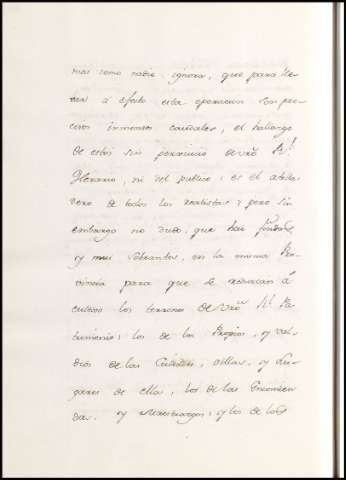 mas como nadie ignora, que para lle-
var á efecto esta operacion son pre-
cisos inmensos caudales, el hallazgo
de estos sin perjuicio de vrô Rl.
Herario, ni del publico; es el
de todos los ; pero sin
embargo no dudo, que hai fondos
y mui sobrantes, en la misma Pro-
vincia para que se reduzcan á
cultivo los terrenos de vrô Rl. Pa-
trimonio; los de los Propios, y val-
dios de las Ciudades, villas, y Lu-
gares de ellas, los de las Encomien-
das, y Maestrazgos; y los de los